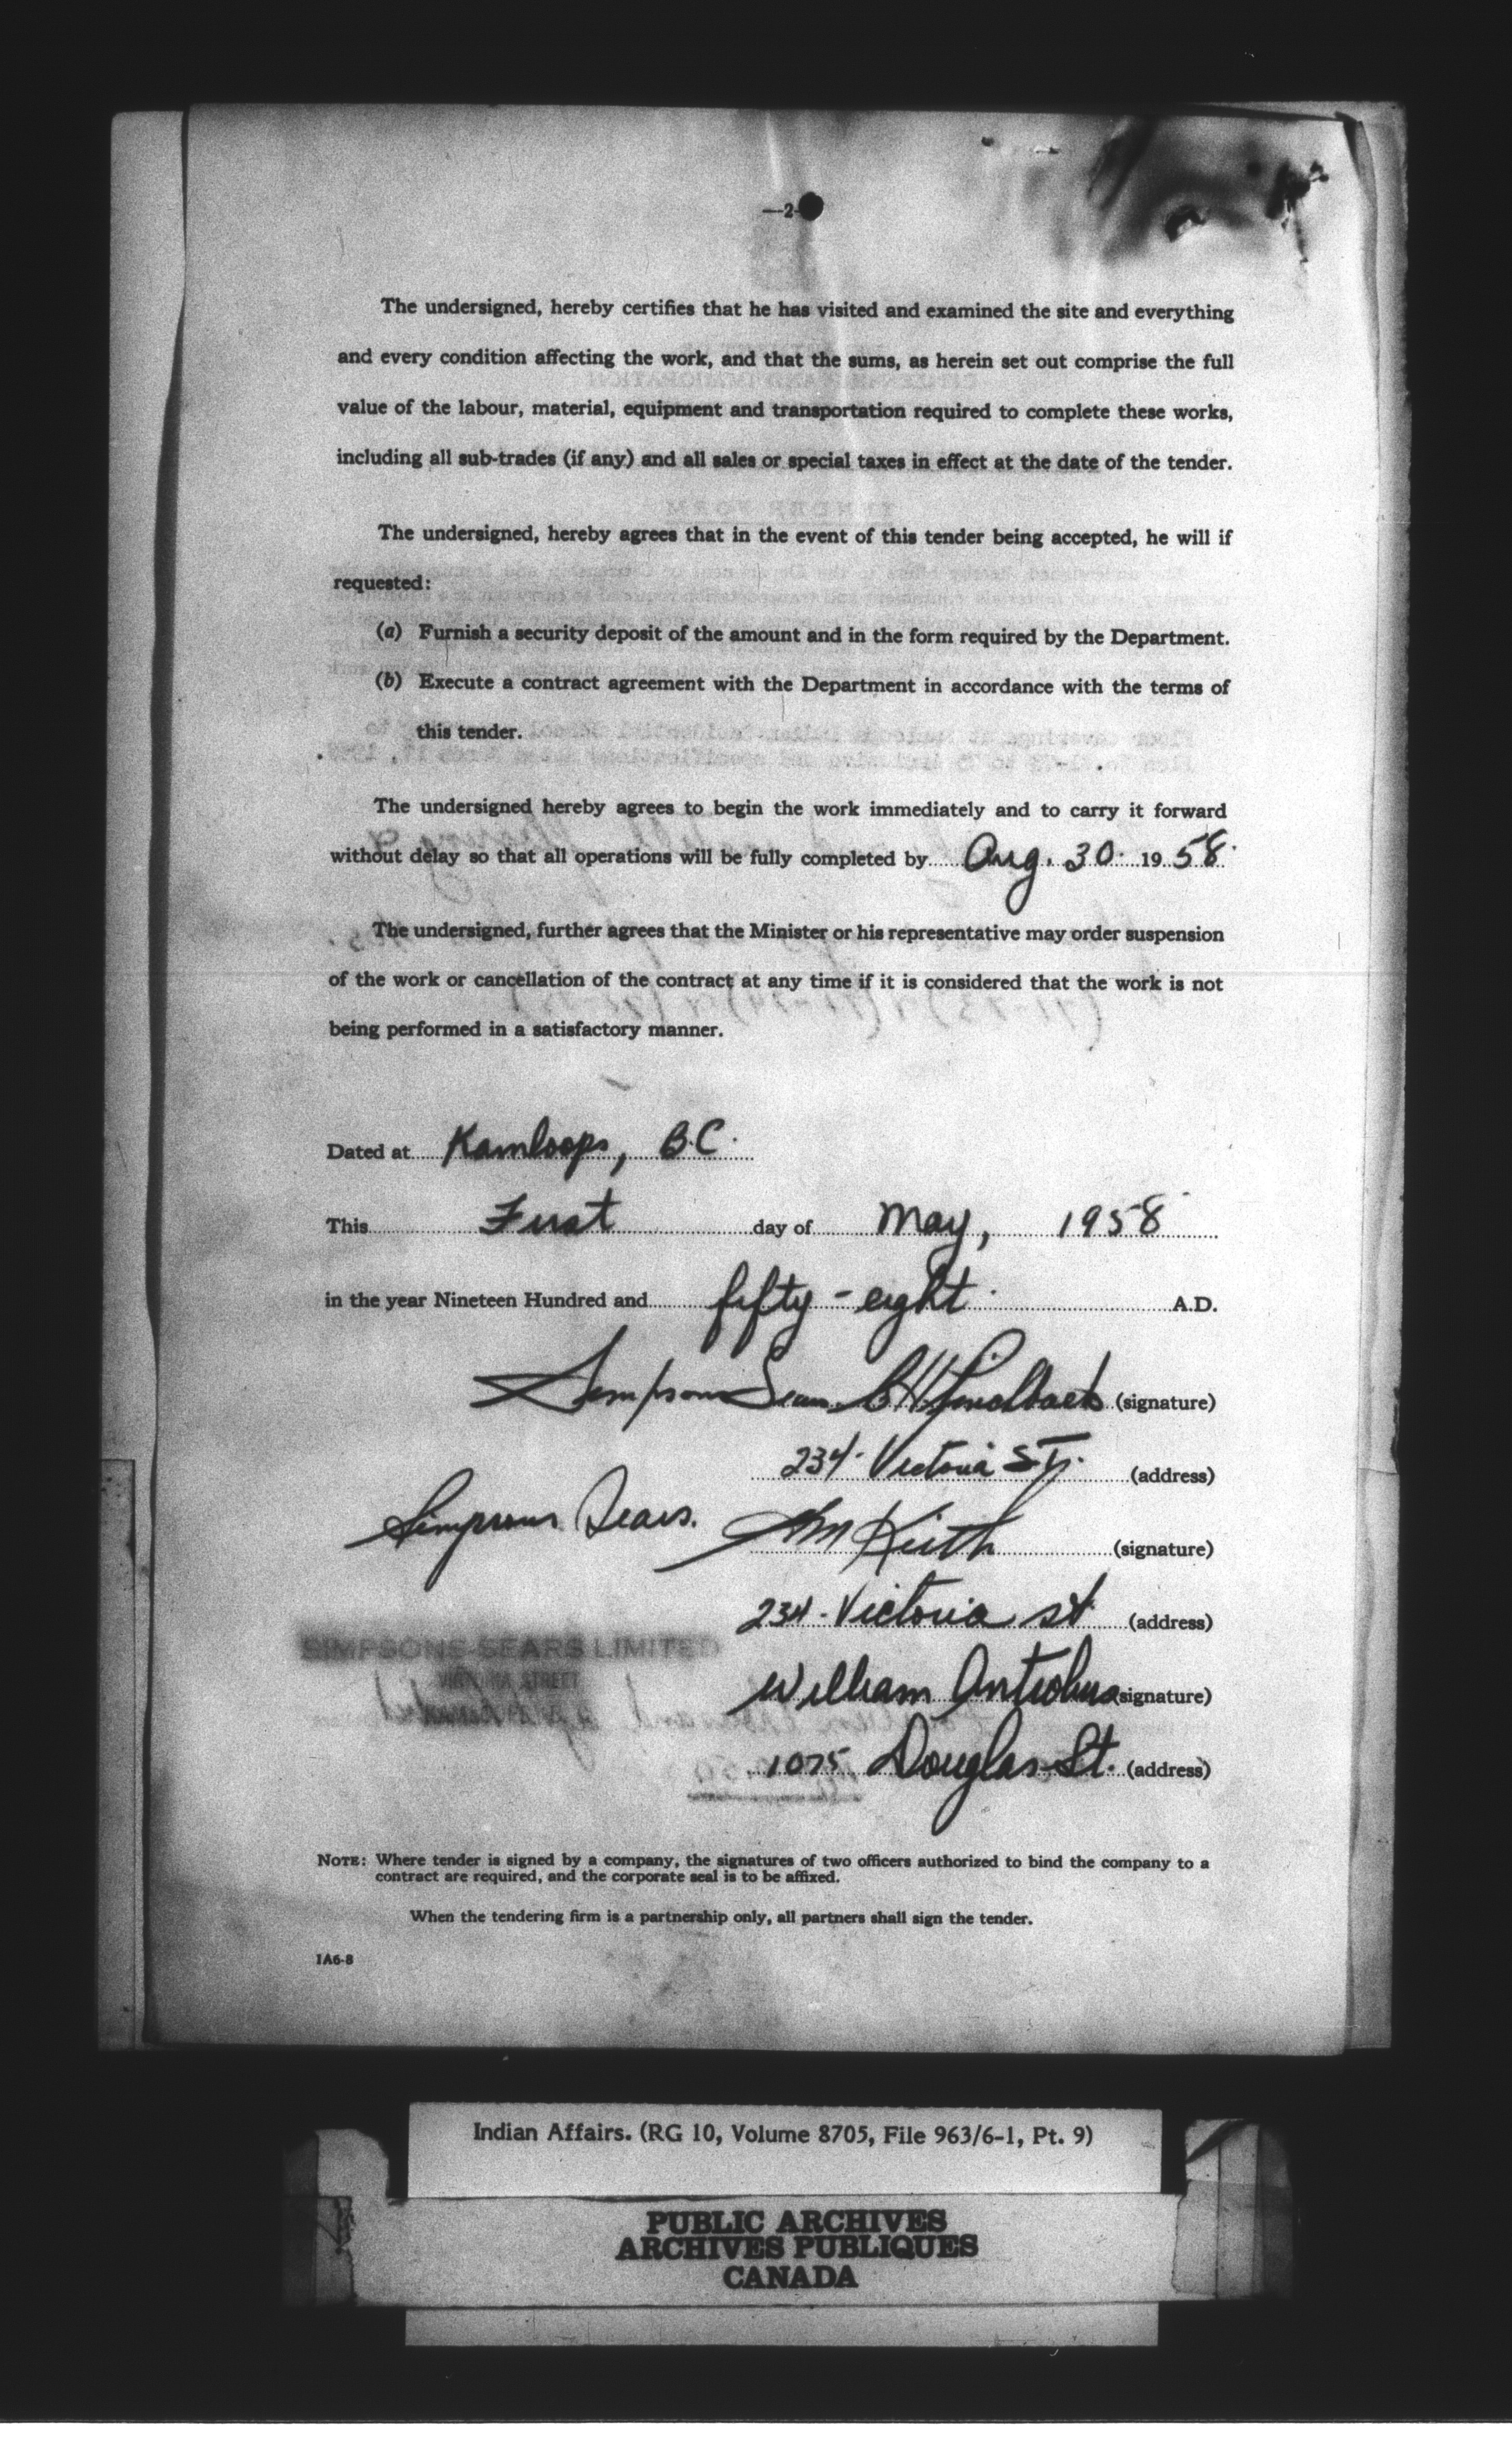 —2—
The undersigned, hereby certifies that he has visited and examined the site and everything
and every condition affecting the work, and that the sums, as herein set out comprise the full
value of the labour, material, equipment and transportation required to complete these works,
including all sub-trades (if any) and all sales or special taxes in effect at the date of the tender.
The undersigned, hereby agrees that in the event of this tender being accepted, he will if
requested:
(a) Furnish a security deposit of the amount and in the form required by the Department.
(b) Execute a contract agreement with the Department in accordance with the terms of
this tender.
The undersigned hereby agrees to begin the work immediately and to carry it forward
without delay so that all operations will be fully completed by Aug. 30. 19 58.
The undersigned, further agrees that the Minister or his representative may order suspension
of the work or cancellation of the contract at any time if it is considered that the work is not
being performed in a satisfactory manner.
Dated at Kamloops, B.C.
This First day of May, 1958
in the year Nineteen Hundred and fifty-eight A.D.
Simpsons Sears (signature)
234 Victoria St. (address)
Simpsons Sears. Keith (signature)
234 - Victoria st (address)
SIMPSONS-SEARS LIMITED
VICTORIA STREET
William (signature)
1075 Douglas St. (address)
NOTE: Where tender is signed by a company, the signatures of two officers authorized to bind the company to a
contract are required, and the corporate seal is to be affixed.
When the tendering firm is a partnership only, all partners shall sign the tender.
1A6-8
Indian Affairs. (RG 10, Volume 8705, File 963/6-1, Pt. 9)
PUBLIC ARCHIVES
ARCHIVES PUBLIQUES
CANADA